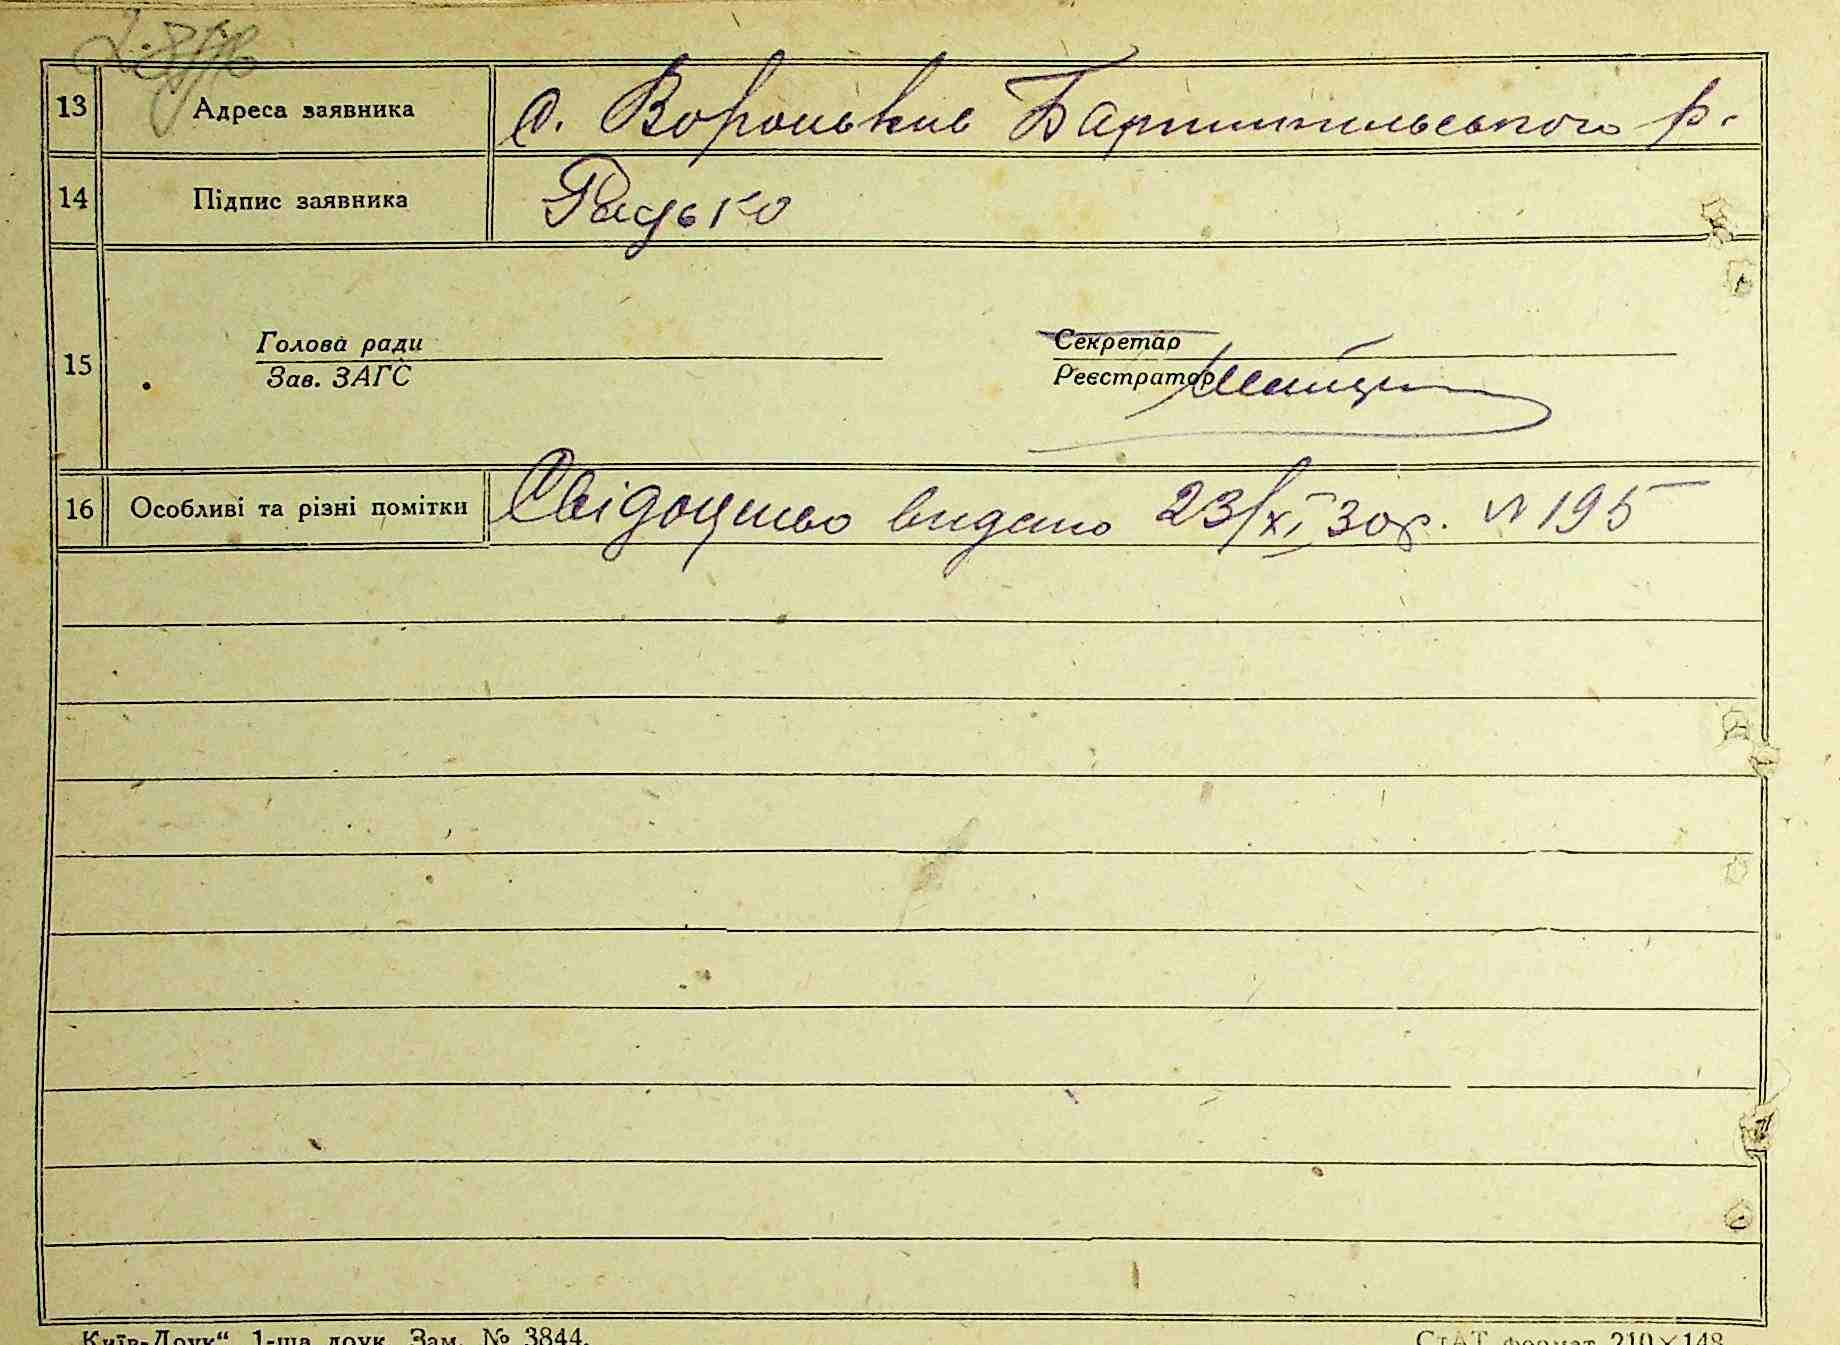 13 Адреса заявника с. Вороньків Бориспільського р.
14 Підпис заявника Радько
15
Голова ради Секретар
Зав. ЗАГС Реєстратор
16 Особливі та різні помітки Свідоцтво видано 23/XI 30 р. № 195
„Київ-Друк“ 1-ша друк. Зам. № 3844. СтАТ формат 210×148